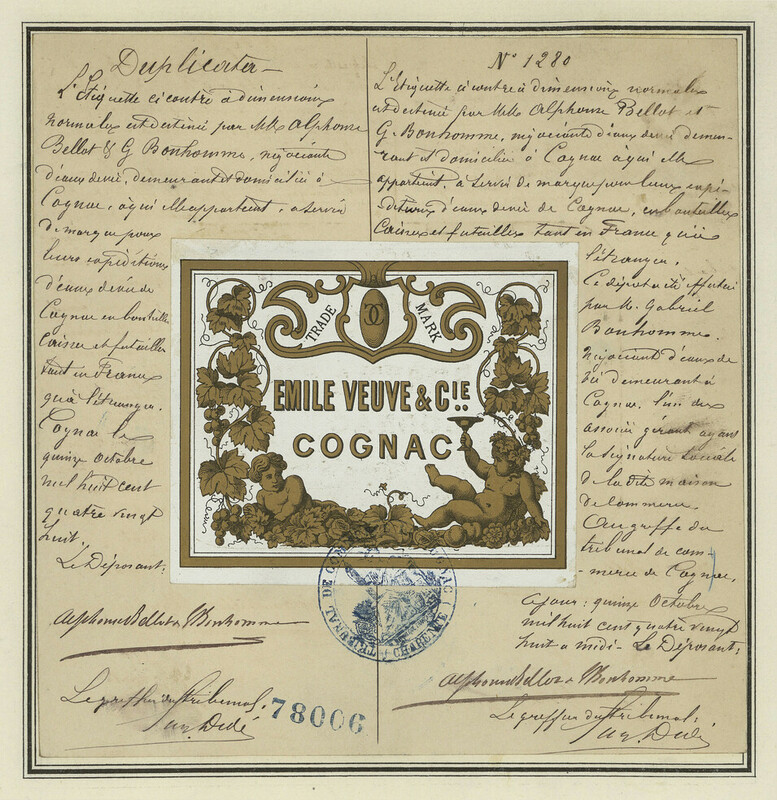 Duplicata
L'Etiquette ci contre à dimensions
normales est destinée par MM. Alphonse
Bellot & G Bonhomme, négociants
d'eaux de vie, demeurant et domiciliés à
Cognac, à qui elle appartient, à servir
de marque pour
leurs expéditions
d'eaux de vie de
Cognac en bouteilles
caisses et futailles
tant en France
qu'à l'étranger.
Cognac le
quinze Octobre
mil huit cent
quatre vingt
huit.
Le Déposant:
Alphonse Bellot & Bonhomme
Le greffier du tribunal.
Dedé
78006
N° 1280
L'étiquette ci contre à dimensions normales
est destinée par MM. Alphonse Bellot et
G. Bonhomme, négociants d'eaux de vie demeu-
rant et domiciliés à Cognac à qui elle
appartient, à servir de marque pour leurs expé-
ditions d'eaux de vie de Cognac, en bouteilles
Caisses et futailles tant en France qu'à
l'étranger.
Ce dépôt a été effectué
par M. Gabriel
Bonhomme.
Négociant d'eaux de
vie demeurant à
Cognac. l'un des
associés gérant ayant
la signature sociale
de la dite maison
de commerce.
Au greffe du
tribunal de com-
-merce de Cognac,
ce jour: quinze Octobre
mil huit cent quatre vingt
huit à midi - Le Déposant:
Alphonse Bellot & Bonhomme
Le greffier du tribunal:
Dedé
TRADE MARK
EMILE VEUVE & CIE.
COGNAC
TRIBUNAL DE COMMERCE COGNAC (CHARENTE)